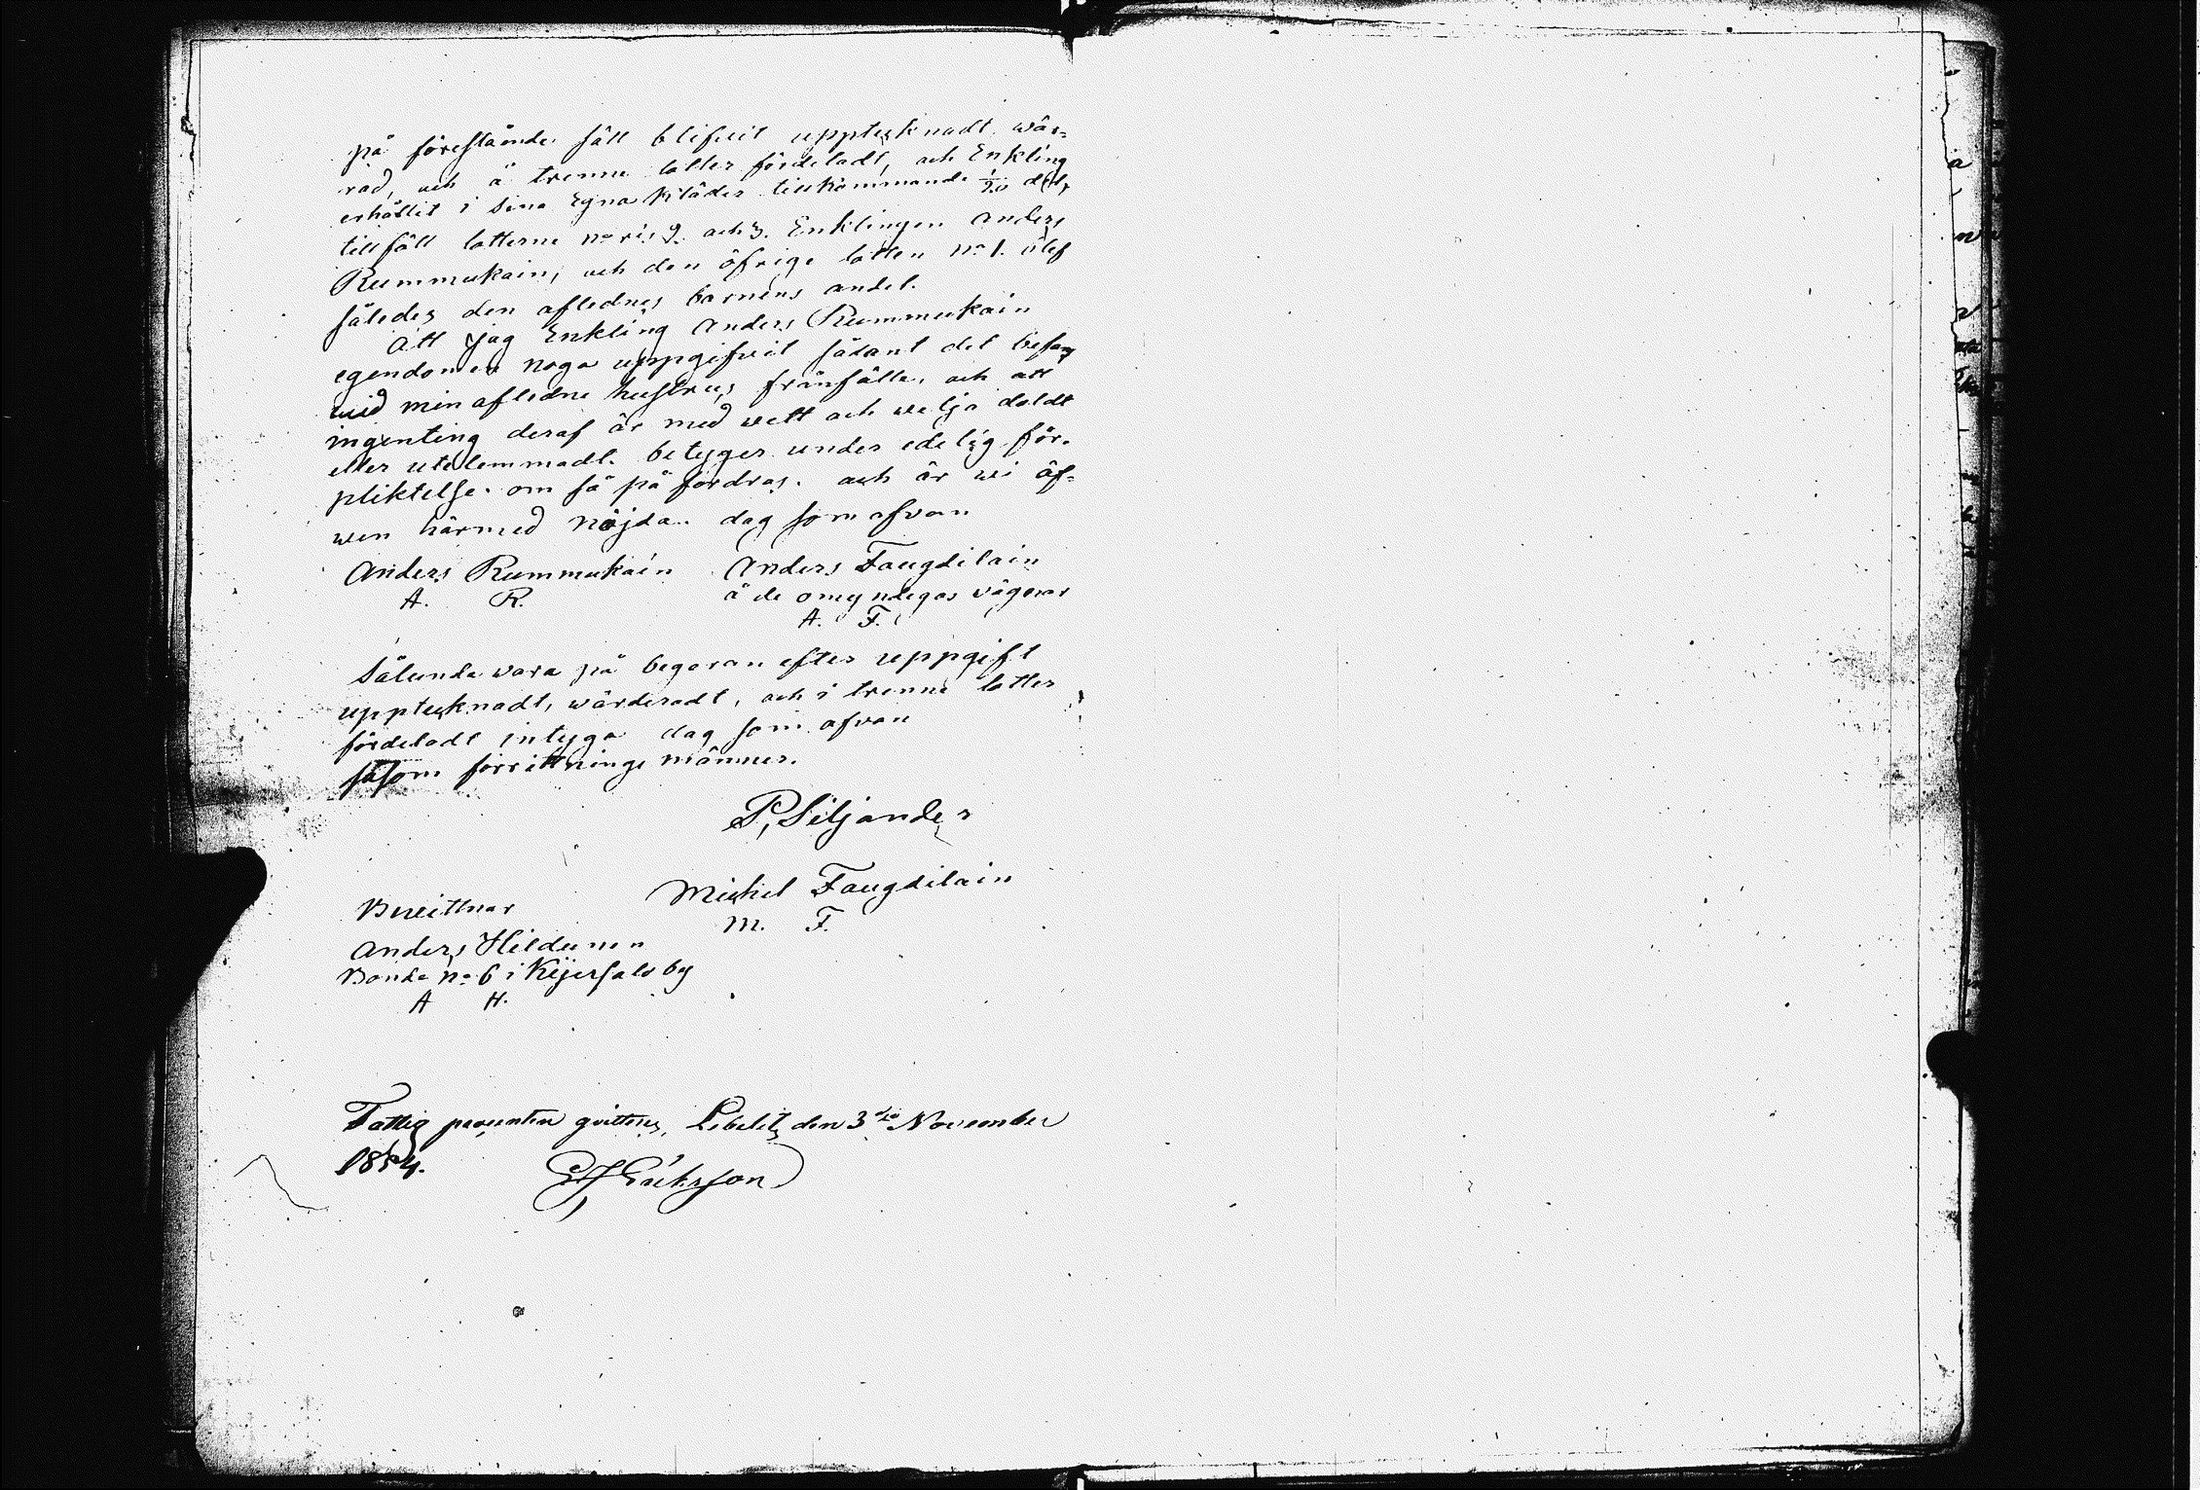 på föreståmde sätt blifvit upptecknadt wär-
rad, och å trenne lotter fördeladt, och Enkling
erhållit i sina Egna Kläder tillkommande 1/20 del,
tillföll lotterne No ris 2. och 3. Enklingen Anders
Rummukain, och den öfrige lotten No 1. blef
således den aflednes barnens andel.
Att jag Enkling Anders Rummukain
egendomen noga uppgifvit sådant det befans
wid min afledne hustrus frånfälle, och att
ingenting deraf är med wett och welja doldt
eller utelemmadt. betyger under edelig för-
pliktelse. om så på fordras. och är wi äf-
wen härmed nöjda. dag som ofvan
Anders Rummukain Anders Faugdilain
A. R. å de omyndigas vägnar
A. F.
Sålunda vara på begäran efter uppgift
upptecknadt, wärderadt, och i trenne lotter
fördeladt intyga dag som ofvan
såsom förrittnings männer.
P. Siljander
Michel Faugdilain
M. F.
Bewittnar
Anders Hildunen
Bonde No 6 i Kijersalo by
A H.
Fattig procenten qvitteras, Libelitz den 3dje November
1854. Eriksson